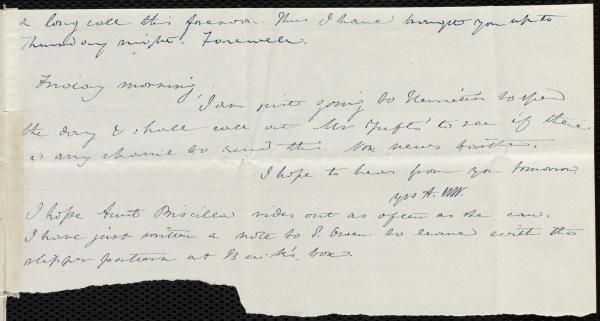 a long call this forenoon. Thus I have brought you up to
Thursday night. Farewell.
Friday morning,
I am just going to Henrietta's to spend
the day & shall call at Mr Tufts' to see if there
is any chance to send this. No news further.
I hope to hear from you tomorrow
yrs A. WW.
I hope Aunt Priscilla rides out as often as she can.
I have just written a note to S. Owen to leave with the
slipper pattern at Burk's box.